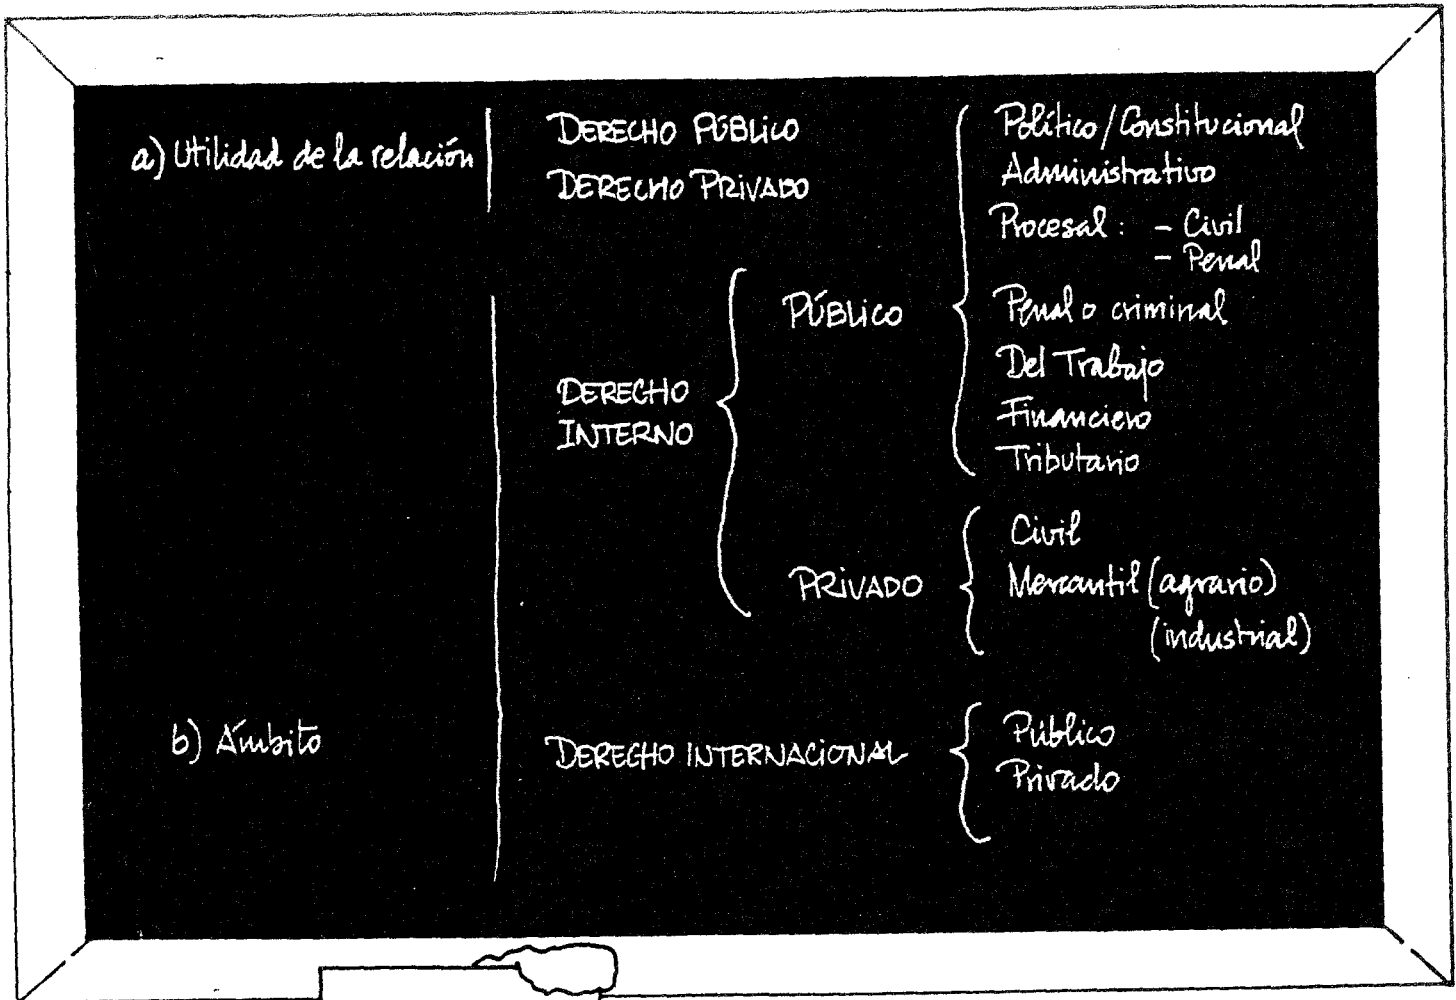 a) Utilidad de la relación
DERECHO PÚBLICO
DERECHO PRIVADO
b) Ámbito
DERECHO
INTERNO
PÚBLICO
Político/Constitucional
Administrativo
Procesal: - Civil
- Penal
Penal o criminal
Del Trabajo
Financiero
Tributario
PRIVADO
Civil
Mercantil (agrario)
(industrial)
DERECHO INTERNACIONAL
Público
Privado